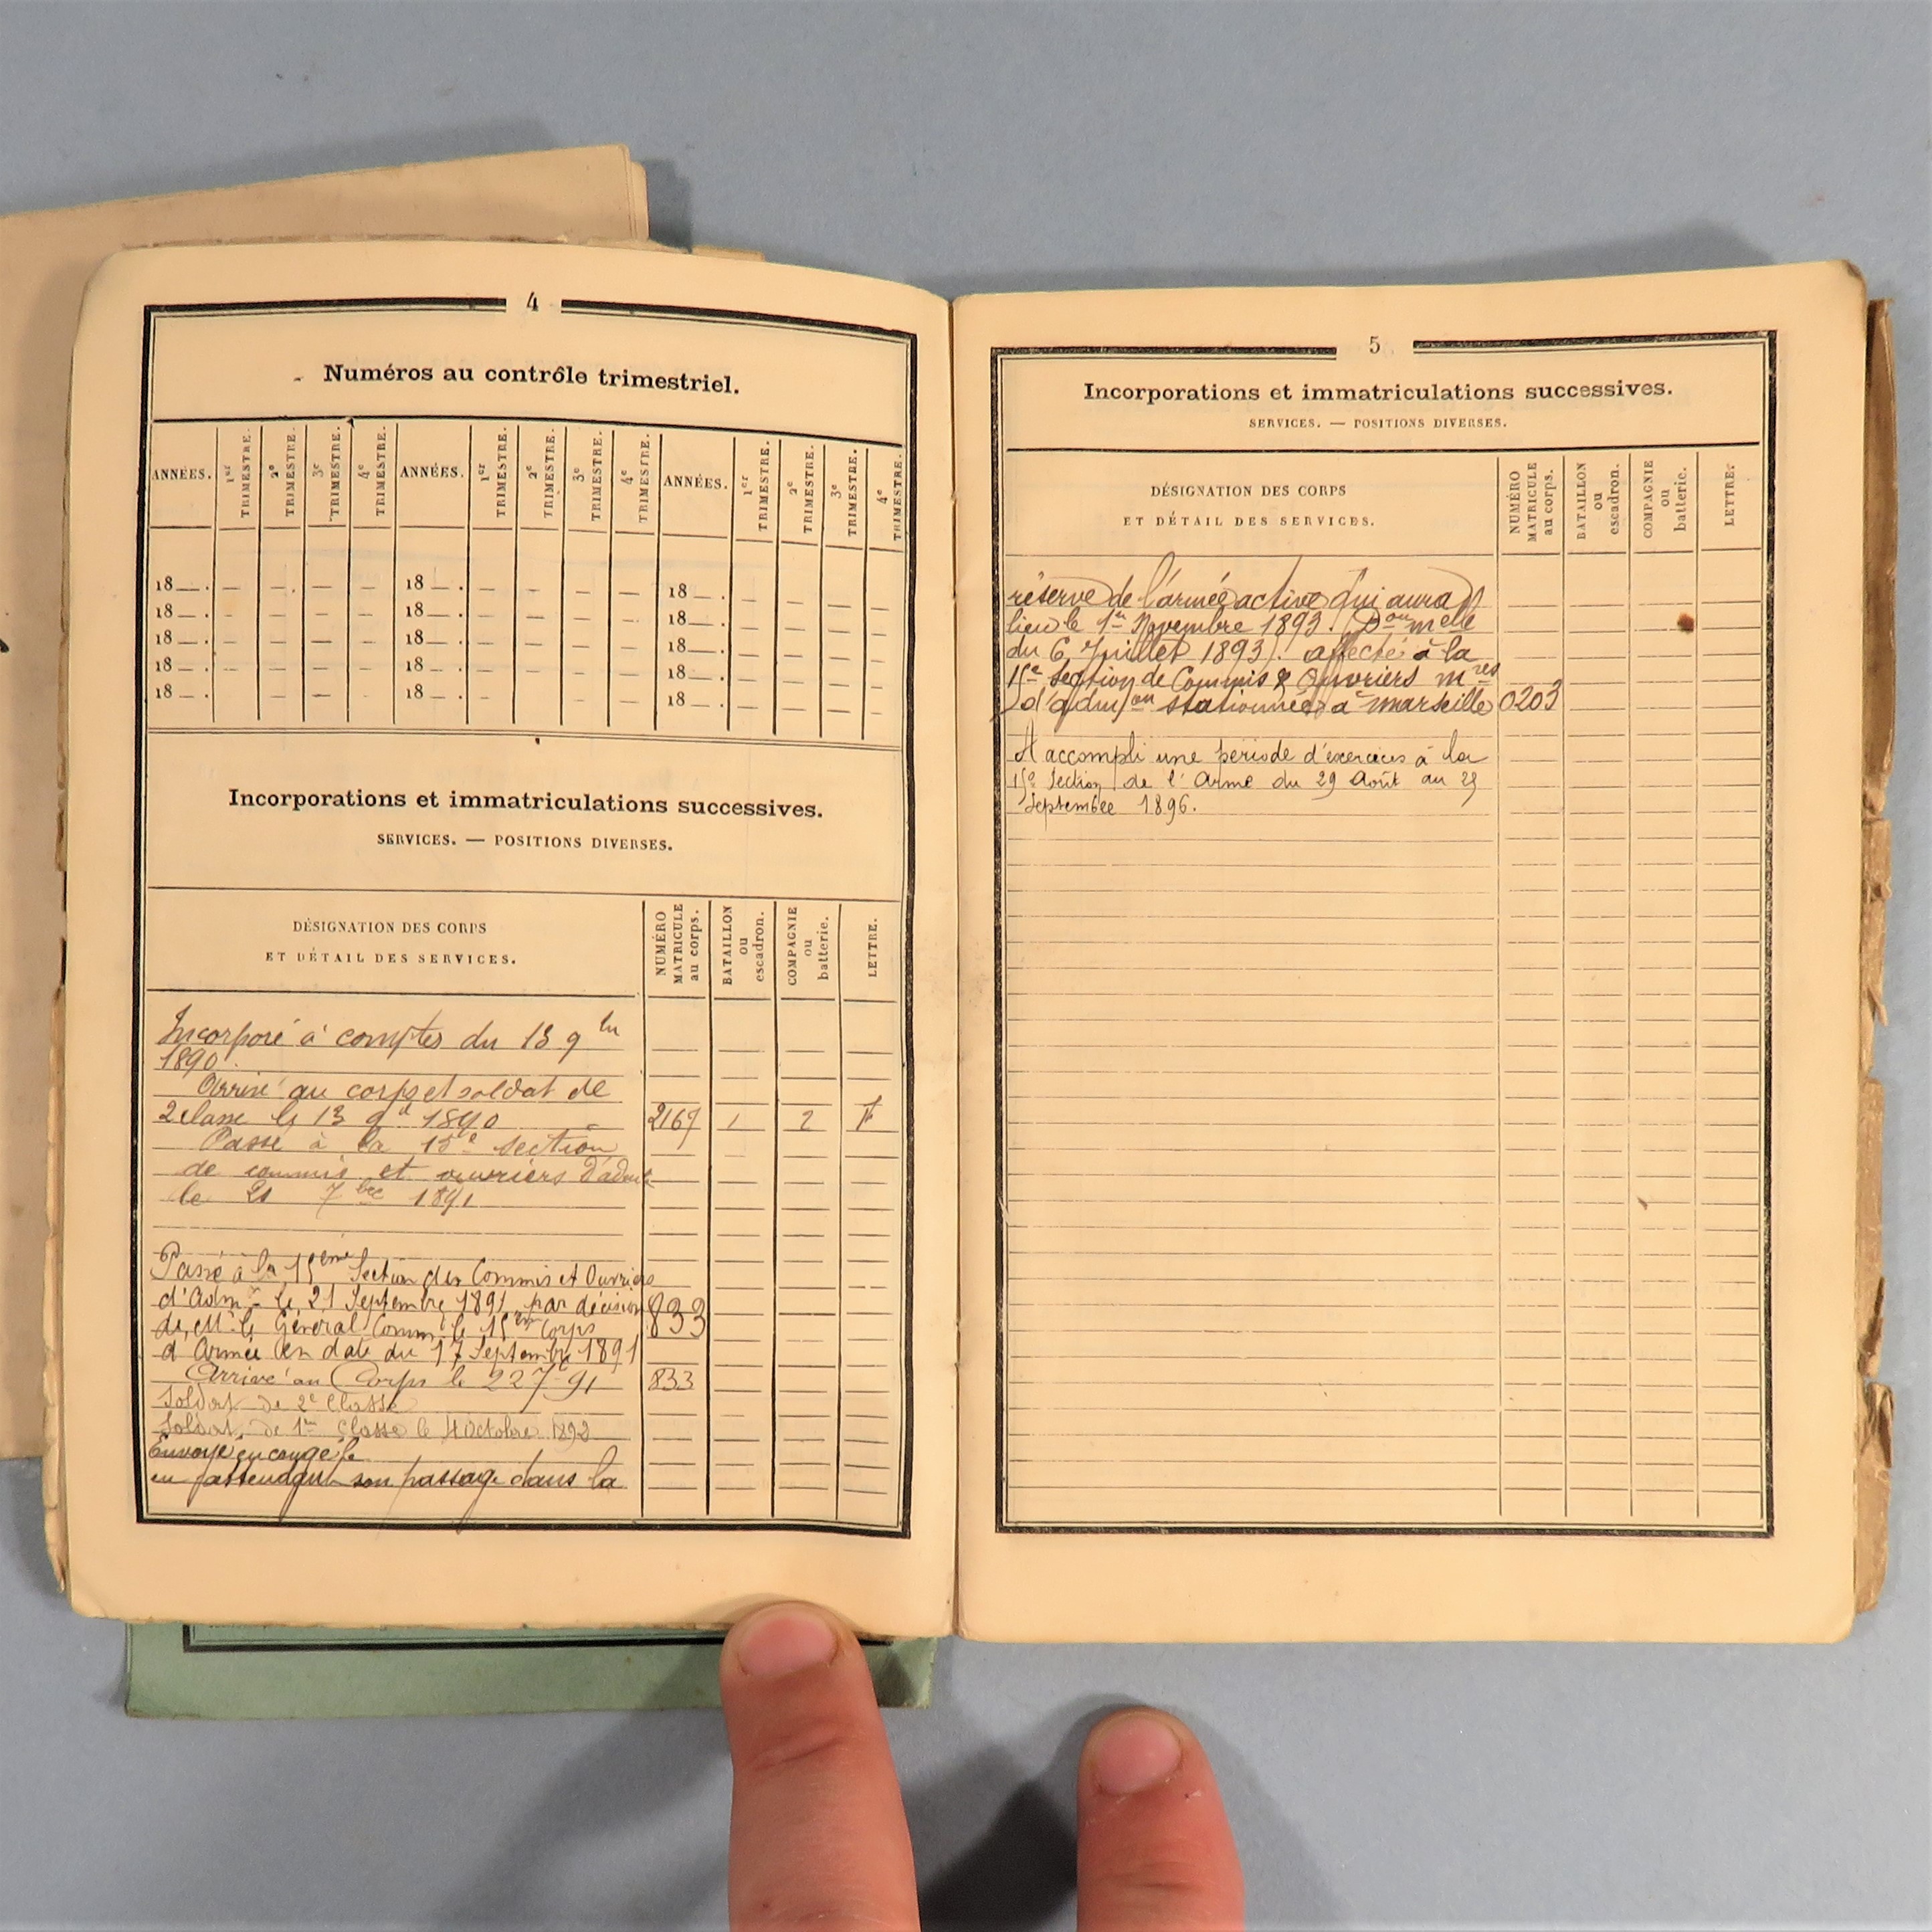 4
Numéros au contrôle trimestriel.
ANNÉES. 1er TRIMESTRE. 2e TRIMESTRE. 3e TRIMESTRE. 4e TRIMESTRE. ANNÉES. 1er TRIMESTRE. 2e TRIMESTRE. 3e TRIMESTRE. 4e TRIMESTRE. ANNÉES. 1er TRIMESTRE. 2e TRIMESTRE. 3e TRIMESTRE. 4e TRIMESTRE.
18 — . — — — — 18 — . — — — — 18 — . — — — —
18 — . — — — — 18 — . — — — — 18 — . — — — —
18 — . — — — — 18 — . — — — — 18 — . — — — —
18 — . — — — — 18 — . — — — — 18 — . — — — —
18 — . — — — — 18 — . — — — — 18 — . — — — —
Incorporations et immatriculations successives.
SERVICES. — POSITIONS DIVERSES.
DÉSIGNATION DES CORPS
ET DÉTAIL DES SERVICES.
NUMÉRO MATRICULE au corps.
BATAILLON ou escadron.
COMPAGNIE ou batterie.
LETTRE.
Incorporé à compter du 13 9bre
1890
Arrivé au corps et soldat de
2 classe le 13 1890 2167 1 2 F
Passé à la 15e section
de commis et ouvriers d'adm
le 21 7bre 1891
Passé à la 15ème Section des Commis et Ouvriers
d'Admon le 21 Septembre 1891 par décision 833
de Mr le Général Commt le 15ème Corps
d'Armée en date du 17 Septembre 1891
Arrivé au Corps le 22 7e 91 833
Soldat de 2e Classe
Soldat de 1re Classe le 4 Octobre 1892
Envoyé en congé le
en attendant son passage dans la
5
Incorporations et immatriculations successives.
SERVICES. — POSITIONS DIVERSES.
DÉSIGNATION DES CORPS
ET DÉTAIL DES SERVICES.
NUMÉRO MATRICULE au corps.
BATAILLON ou escadron.
COMPAGNIE ou batterie.
LETTRE.
réserve de l'armée active qui aura
lieu le 1er Novembre 1893. (Don melle
du 6 Juillet 1893). affecté à la
15e section de Commis & Ouvriers mres
d'admon stationnée à Marseille 0203
A accompli une période d'exercices à la
15e Section de l'Arme du 29 Août au 25
Septembre 1896.